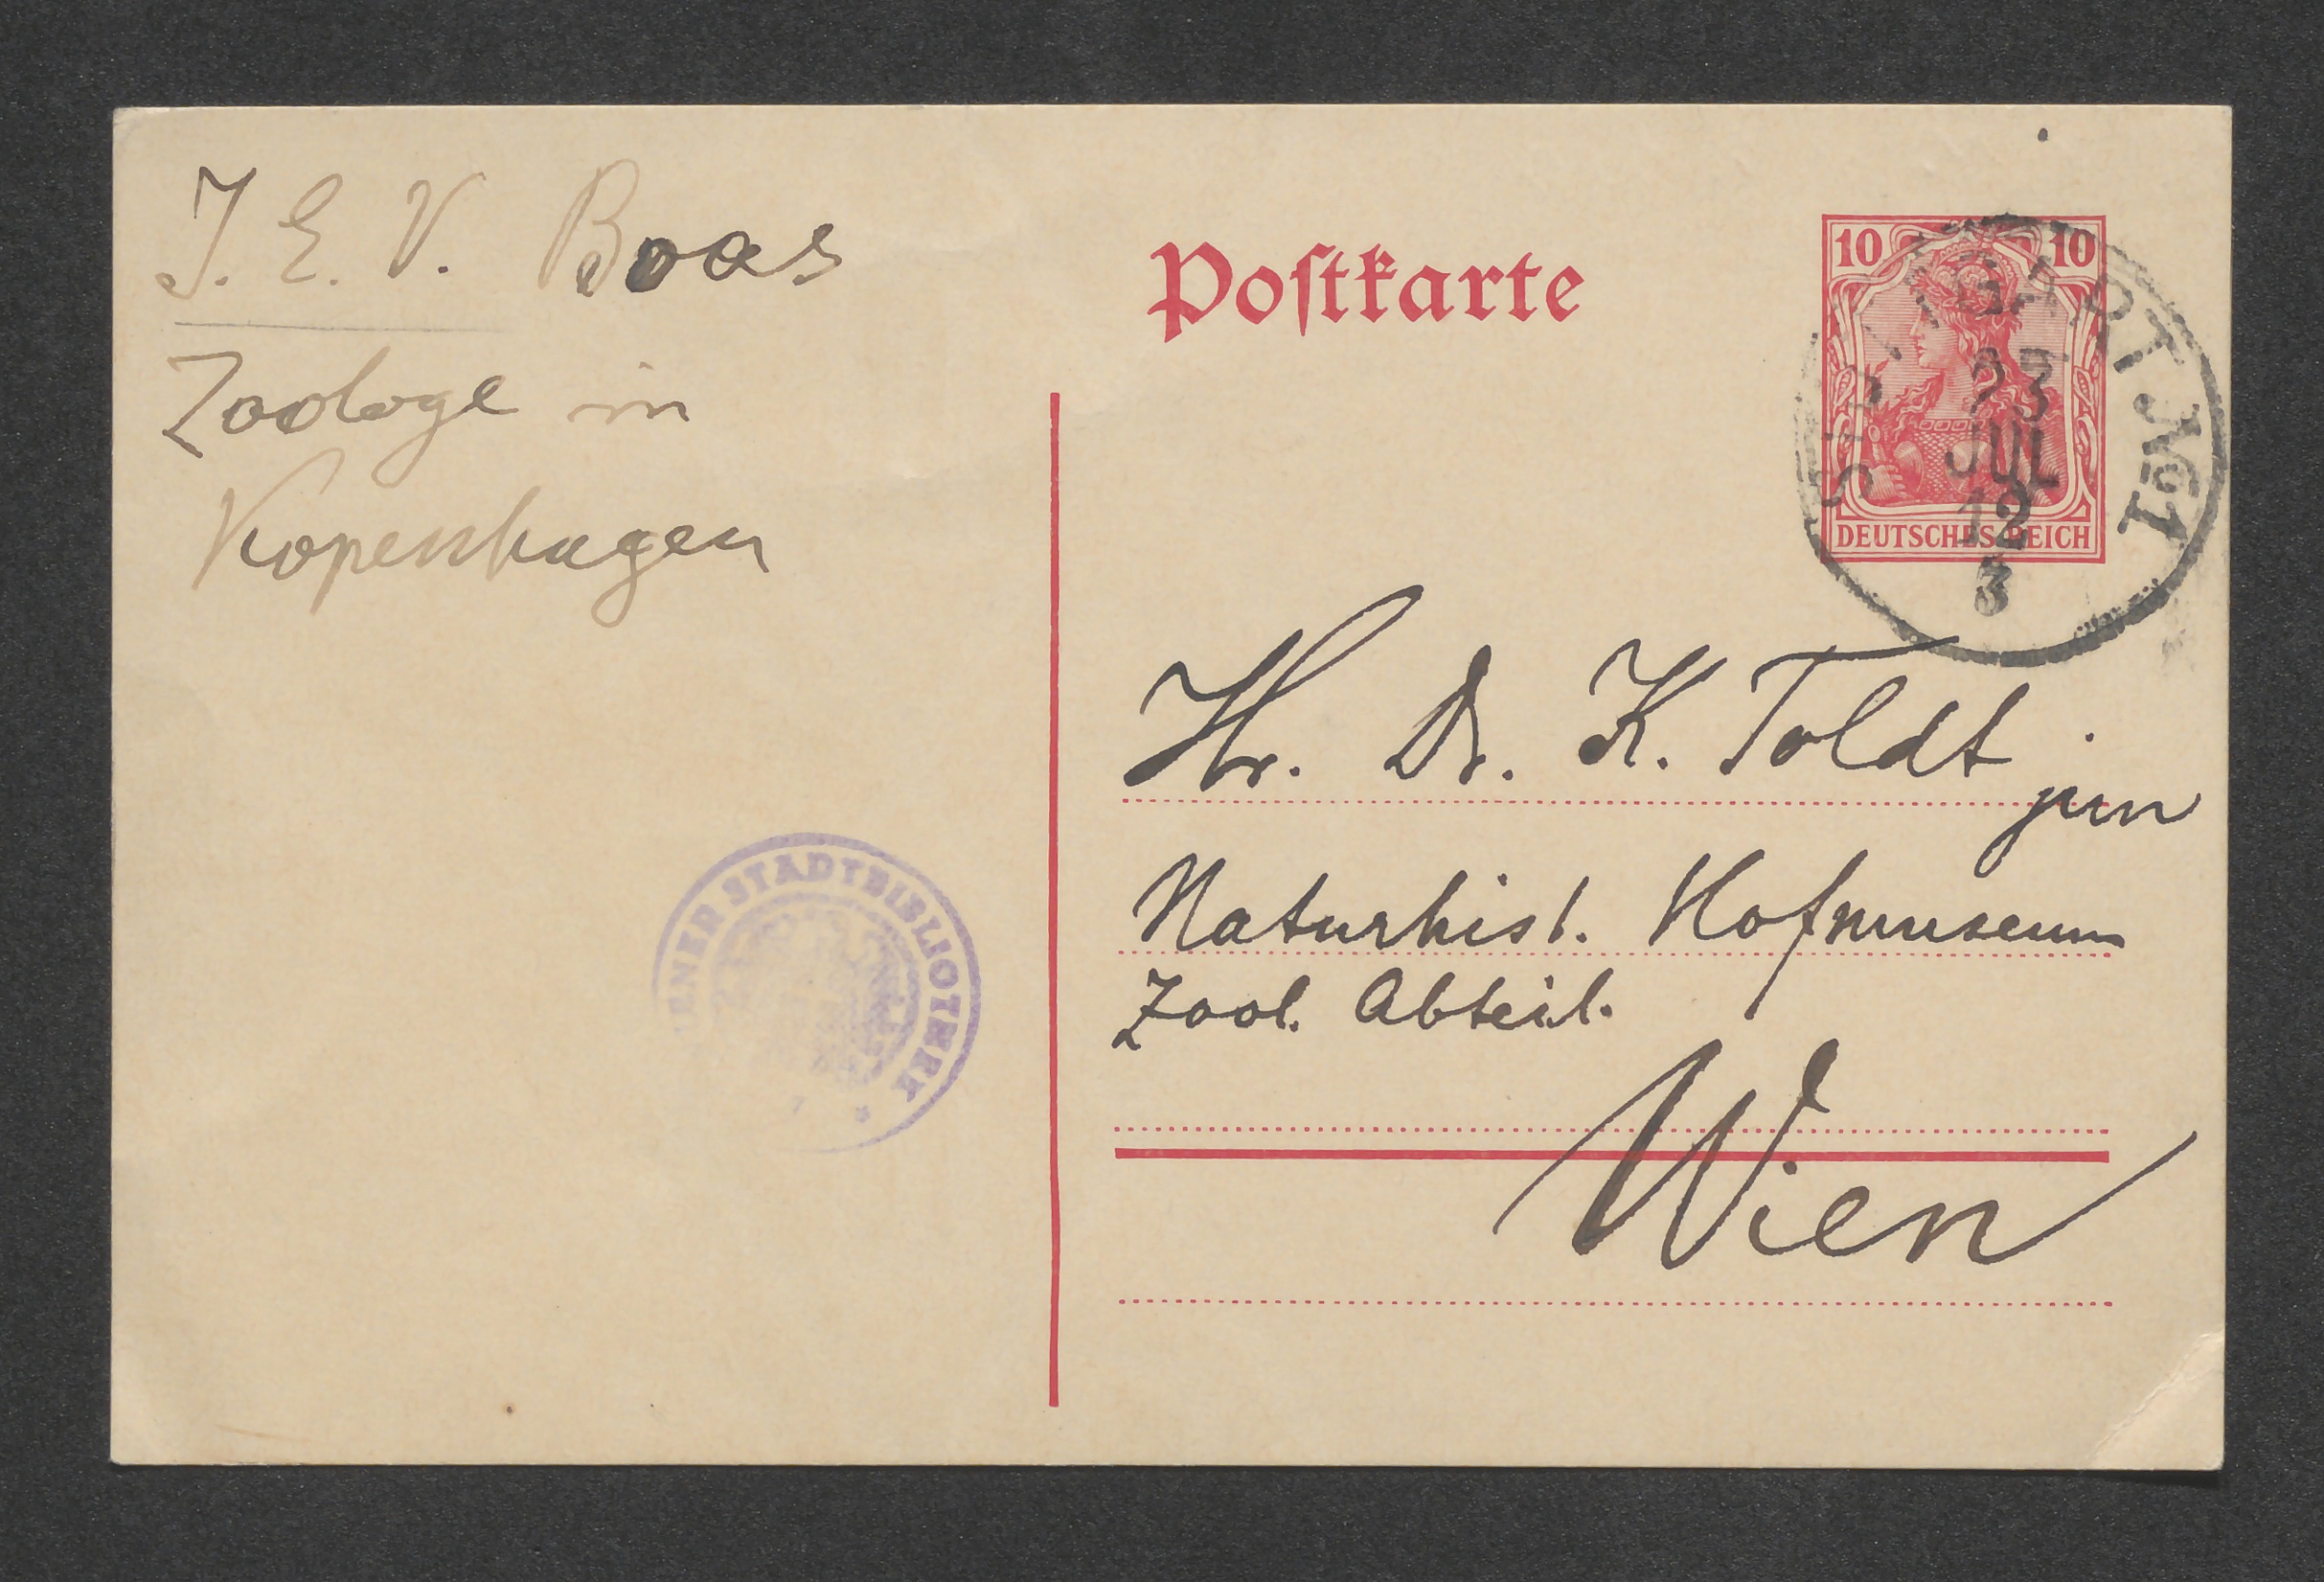 J. E. V. Boas
Zoologe in
Kopenhagen
Postkarte
10 10
DEUTSCHES REICH
STUTTGART № 1
23
JUL
12
3
Hr. Dr. K. Toldt
jun
Naturhist. Hofmuseum
Zool. Abteil.
Wien
ENER STADTBIBLIOTHEK